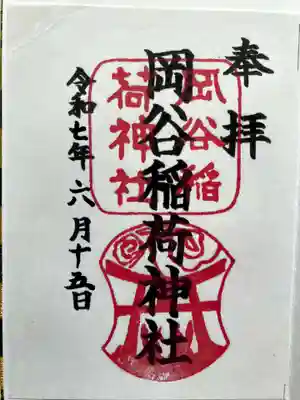 奉拝
岡谷稲荷神社
令和七年六月十五日
岡谷稲
荷神社